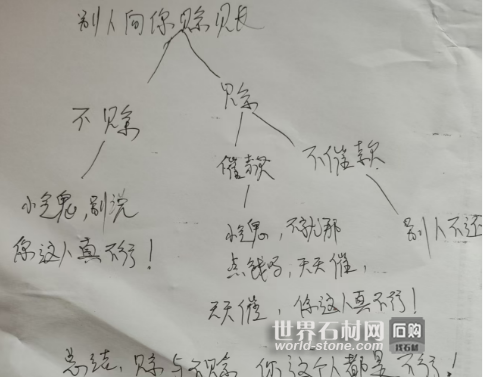 别人向你赊账
不赊
赊
催款
不催款
小气鬼,别说
你这人真不行!
小气鬼,不就那
点钱吗,天天催,
天天催,你这人真不行!
别人不还
总结,赊与不赊 你这个人都是不行!
世界石材网
world-stone.com
石购
找石材